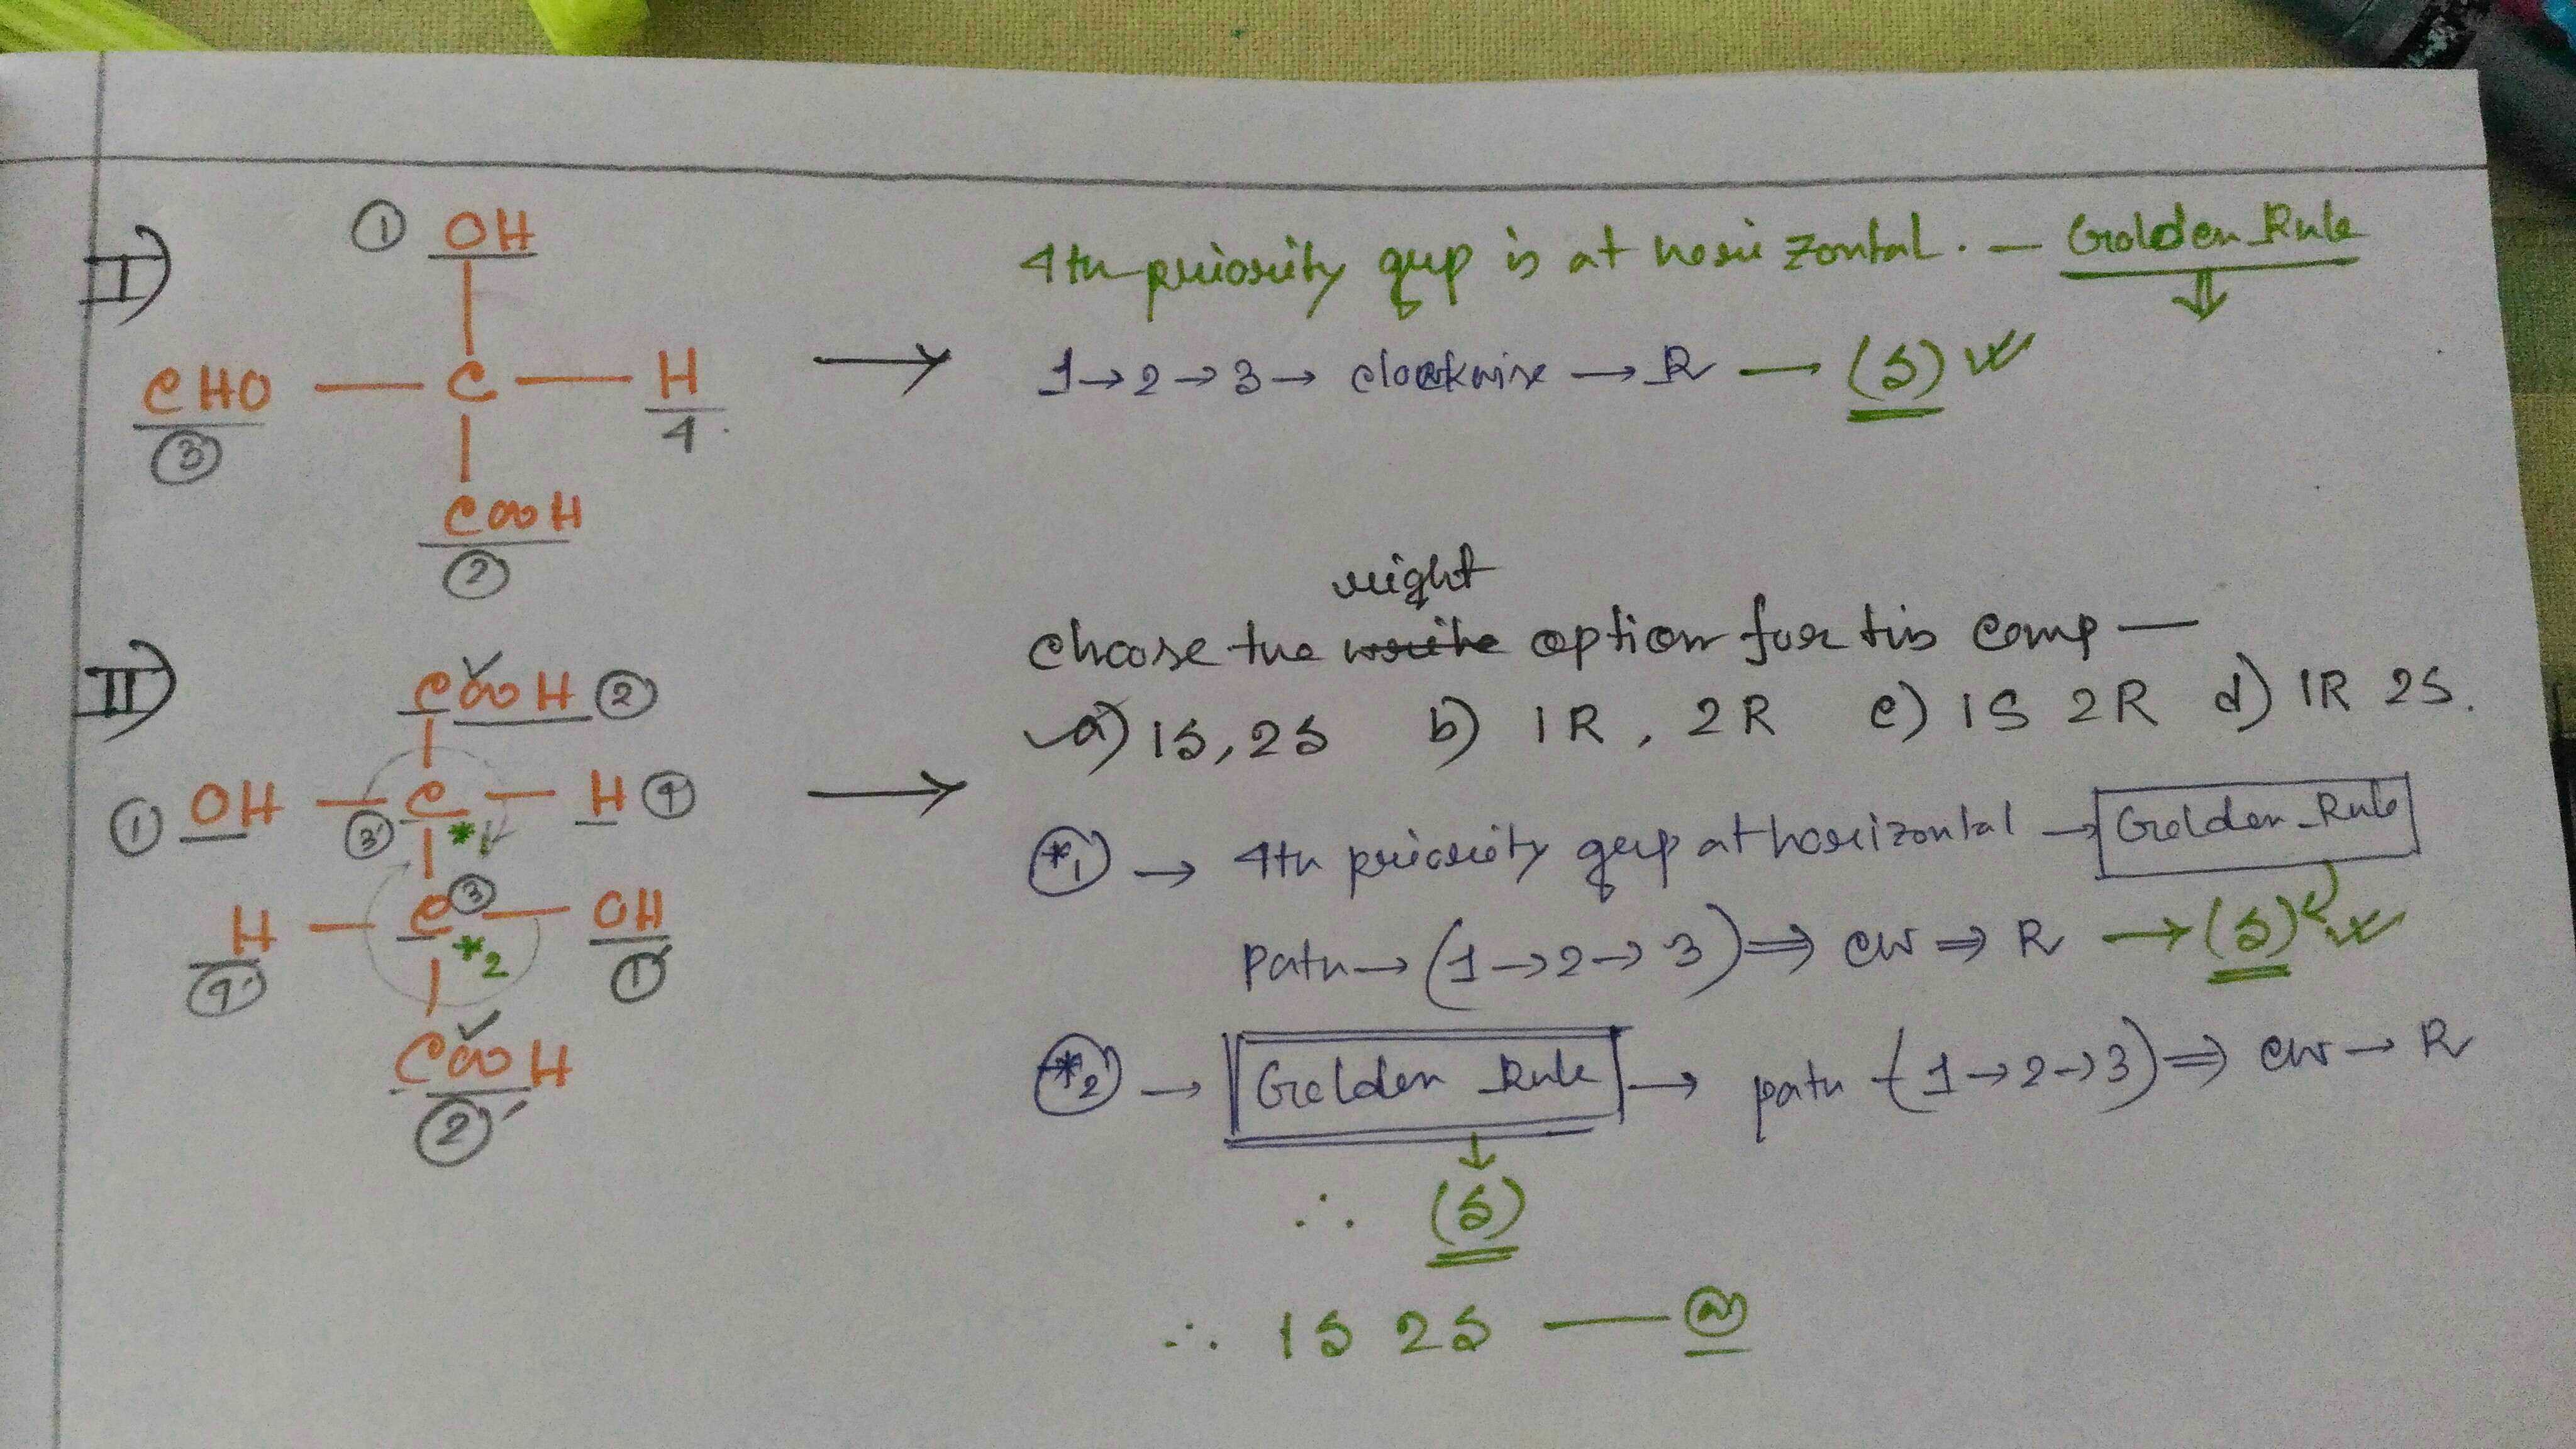 I)
① OH
CHO — C — H
③ 4
COOH
②
4th priority grp is at horizontal. — Golden Rule
1→2→3→ clockwise → R — (S)
II)
COOH ②
① OH — C — H ④
③' *1
H — C ③ — OH
④' *2 ①'
COOH
②'
right
Choose the write option for this comp —
a) 1S, 2S b) 1R, 2R c) 1S 2R d) 1R 2S.
*1 → 4th priority grp at horizontal → Golden Rule
Path → (1→2→3) ⇒ CW ⇒ R → (S)
*2 → Golden Rule → path (1→2→3) ⇒ CW → R
∴ (S)
∴ 1S 2S — ⓐ